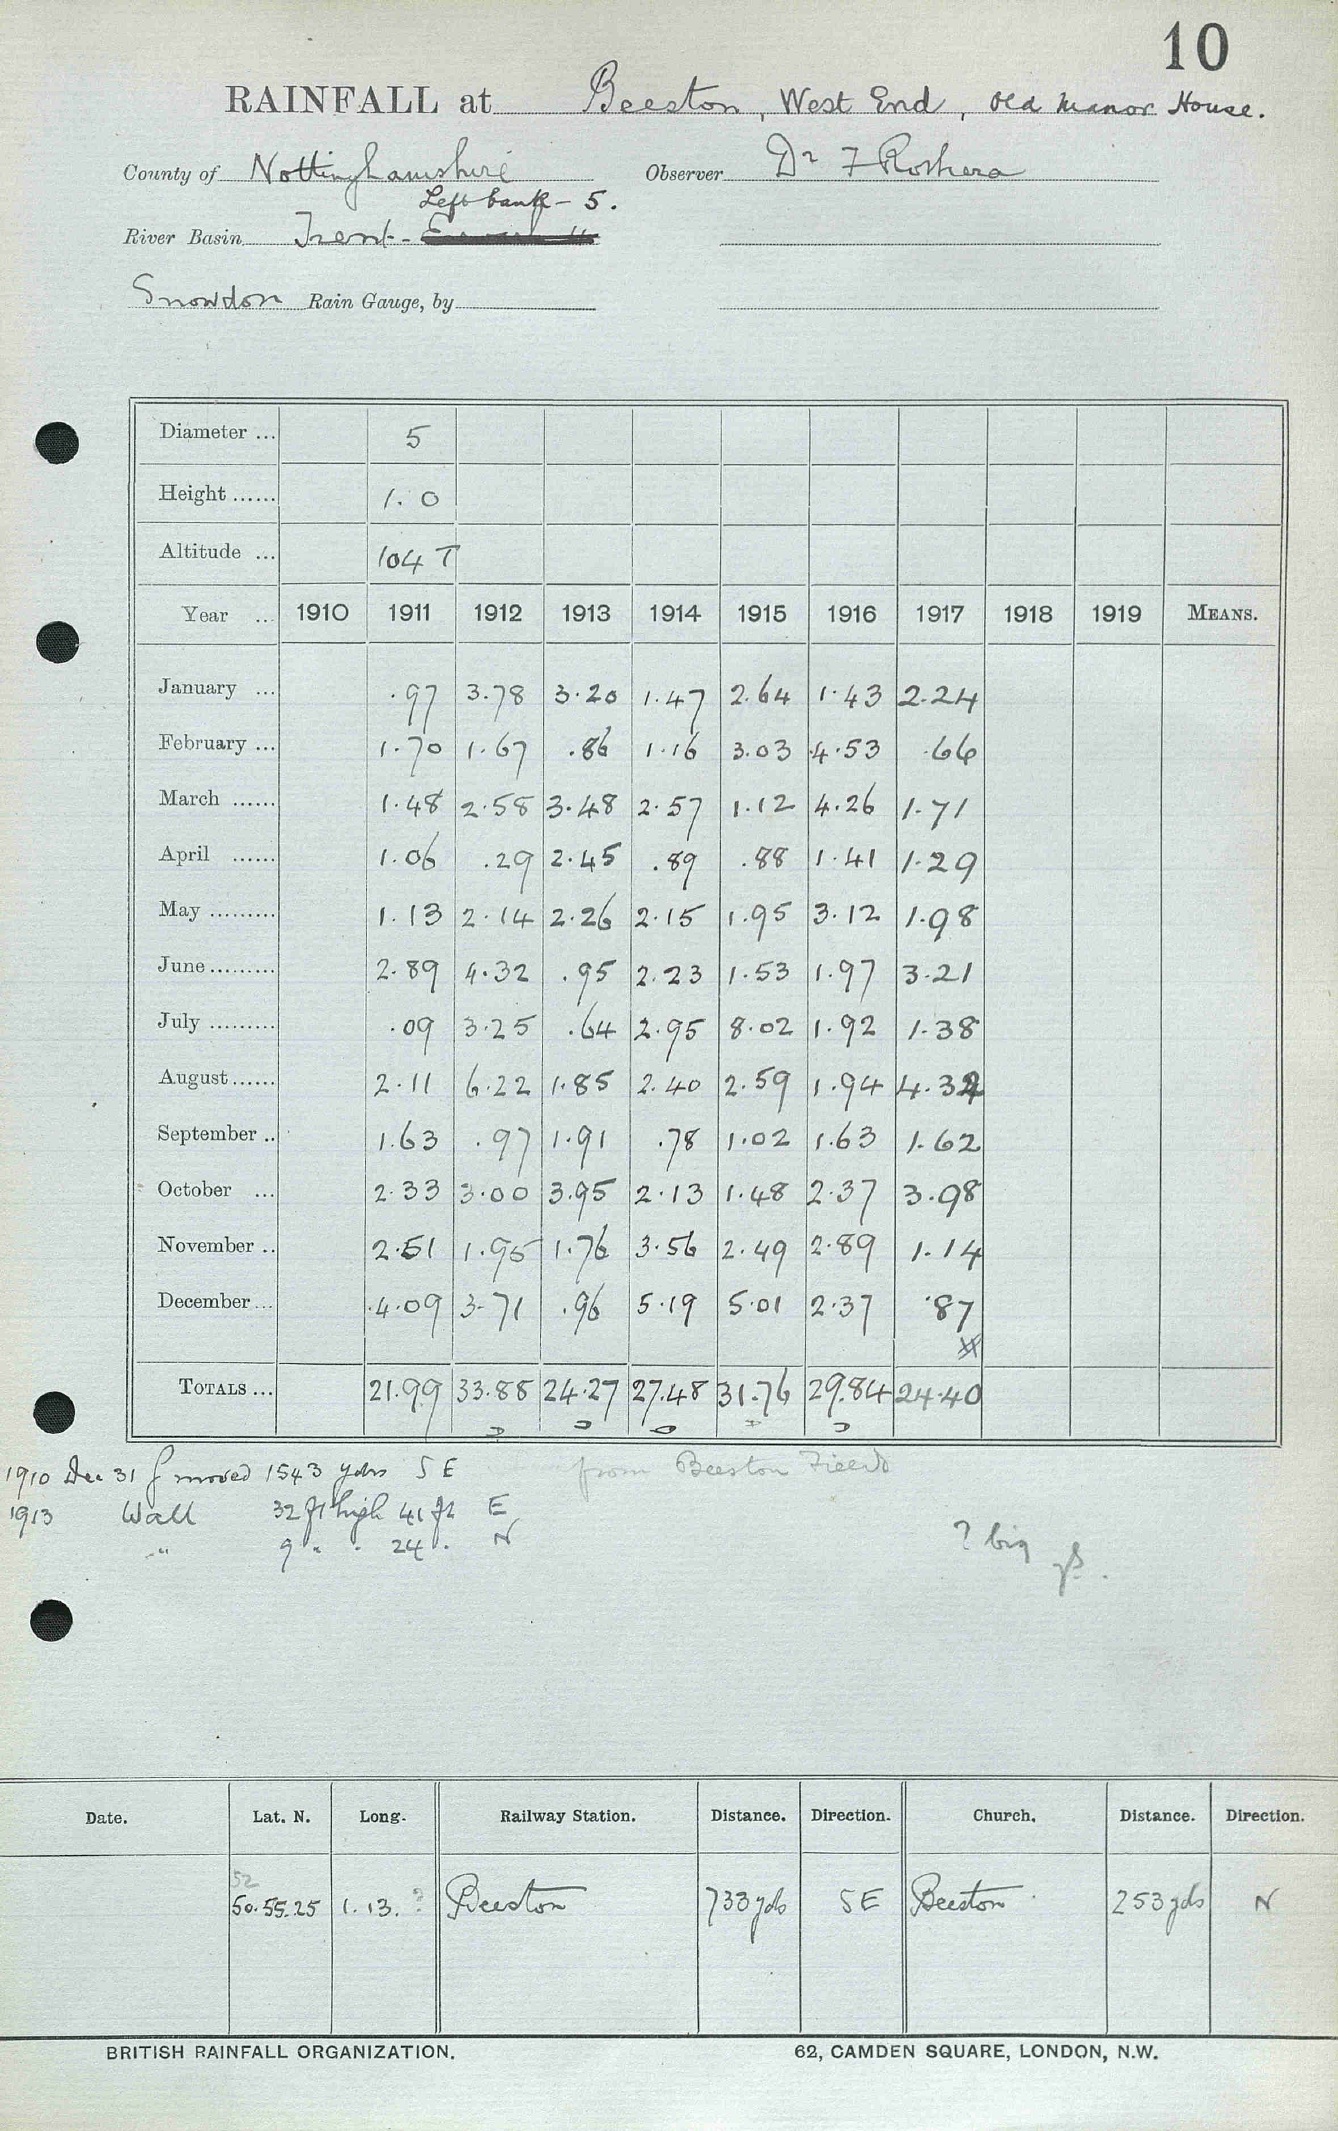 10
RAINFALL at Beeston, West End, Old Manor House.
County of Nottinghamshire Observer Dr F Rothera
Left bank - 5.
River Basin Trent -
Snowdon Rain Gauge, by
Diameter ... 5
Height ...... 1.0
Altitude ... 104 T
Year ... 1910 1911 1912 1913 1914 1915 1916 1917 1918 1919 MEANS.
January ... .97 3.78 3.20 1.47 2.64 1.43 2.24
February ... 1.70 1.67 .86 1.16 3.03 4.53 .66
March ...... 1.48 2.58 3.48 2.57 1.12 4.26 1.71
April ...... 1.06 .29 2.45 .89 .88 1.41 1.29
May ......... 1.13 2.14 2.26 2.15 1.95 3.12 1.98
June ......... 2.89 4.32 .95 2.23 1.53 1.97 3.21
July ......... .09 3.25 .64 2.95 8.02 1.92 1.38
August ...... 2.11 6.22 1.85 2.40 2.59 1.94 4.32
September .. 1.63 .97 1.91 .78 1.02 1.63 1.62
October ... 2.33 3.00 3.95 2.13 1.48 2.37 3.98
November .. 2.51 1.95 1.76 3.56 2.49 2.89 1.14
December ... 4.09 3.71 .96 5.19 5.01 2.37 .87
TOTALS ... 21.99 33.88 24.27 27.48 31.76 29.84 24.40
1910 Dec 31 g moved 1543 yds SE from Beeston Fields
1913 Wall 32 ft high 41 ft E
" 9 " . 24 . N
? big
Date. Lat. N. Long. Railway Station. Distance. Direction. Church. Distance. Direction.
52
50.55.25 1.13. ? Beeston 733 yds SE Beeston 253 yds N
BRITISH RAINFALL ORGANIZATION. 62, CAMDEN SQUARE, LONDON, N.W.